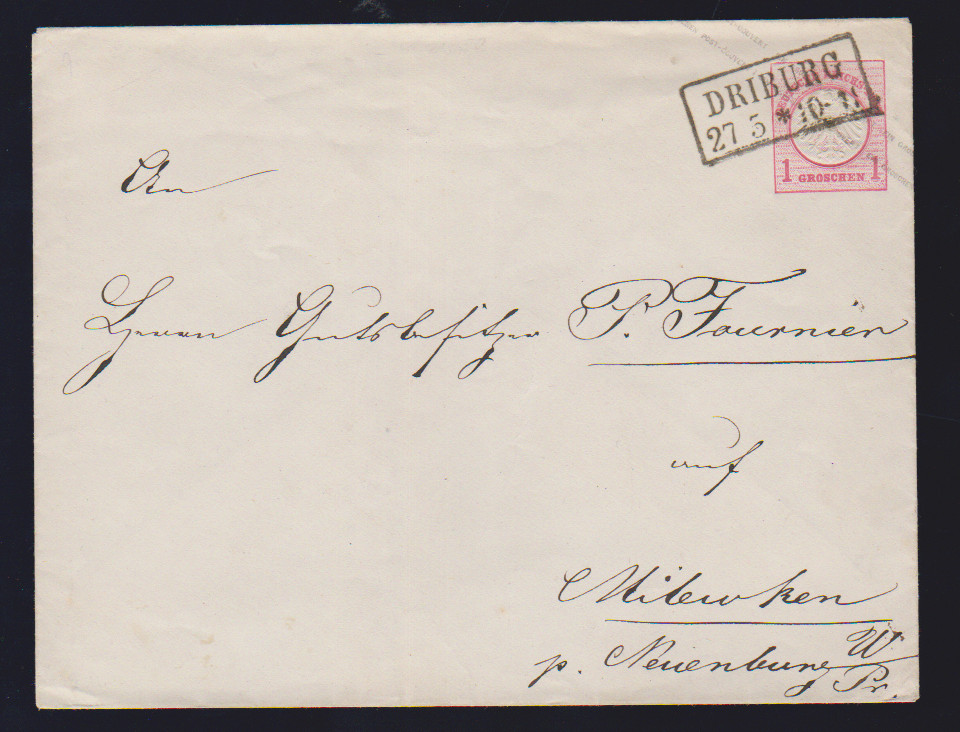 DRIBURG
27 5 * 10-11
1 GROSCHEN 1
An
Herrn Gutsbesitzer P. Fournier
auf
Milewken
p. Neuenburg W/Pr.